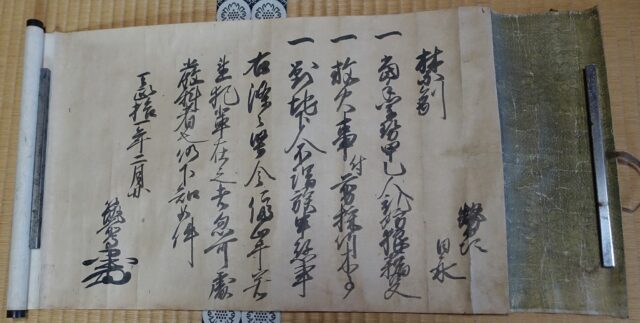 勢州
日永
禁制
一當手軍勢甲乙人等濫妨狼藉事
一放火事付剪採竹木事
一對地下人不謂族申懸事
右條々堅令停止畢若
違犯輩在之者忽可處
嚴科者也仍下知如件
天正拾一年二月日